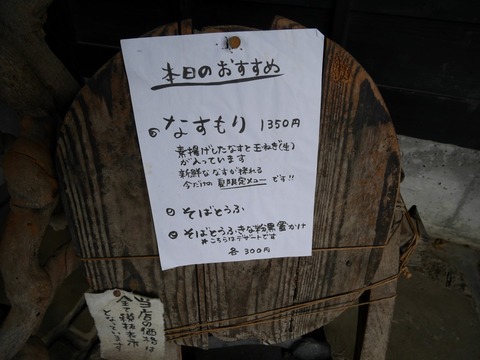 本日のおすすめ
◎なすもり 1350円
素揚げしたなすと玉ねぎ(生)
が入っています
新鮮ななすが採れる
今だけの夏限定メニューです!!
◎そばとうふ
◎そばとうふきな粉黒蜜かけ
*こちらはデザートです
各300円
当店の価格は
全て税抜表示
となっています